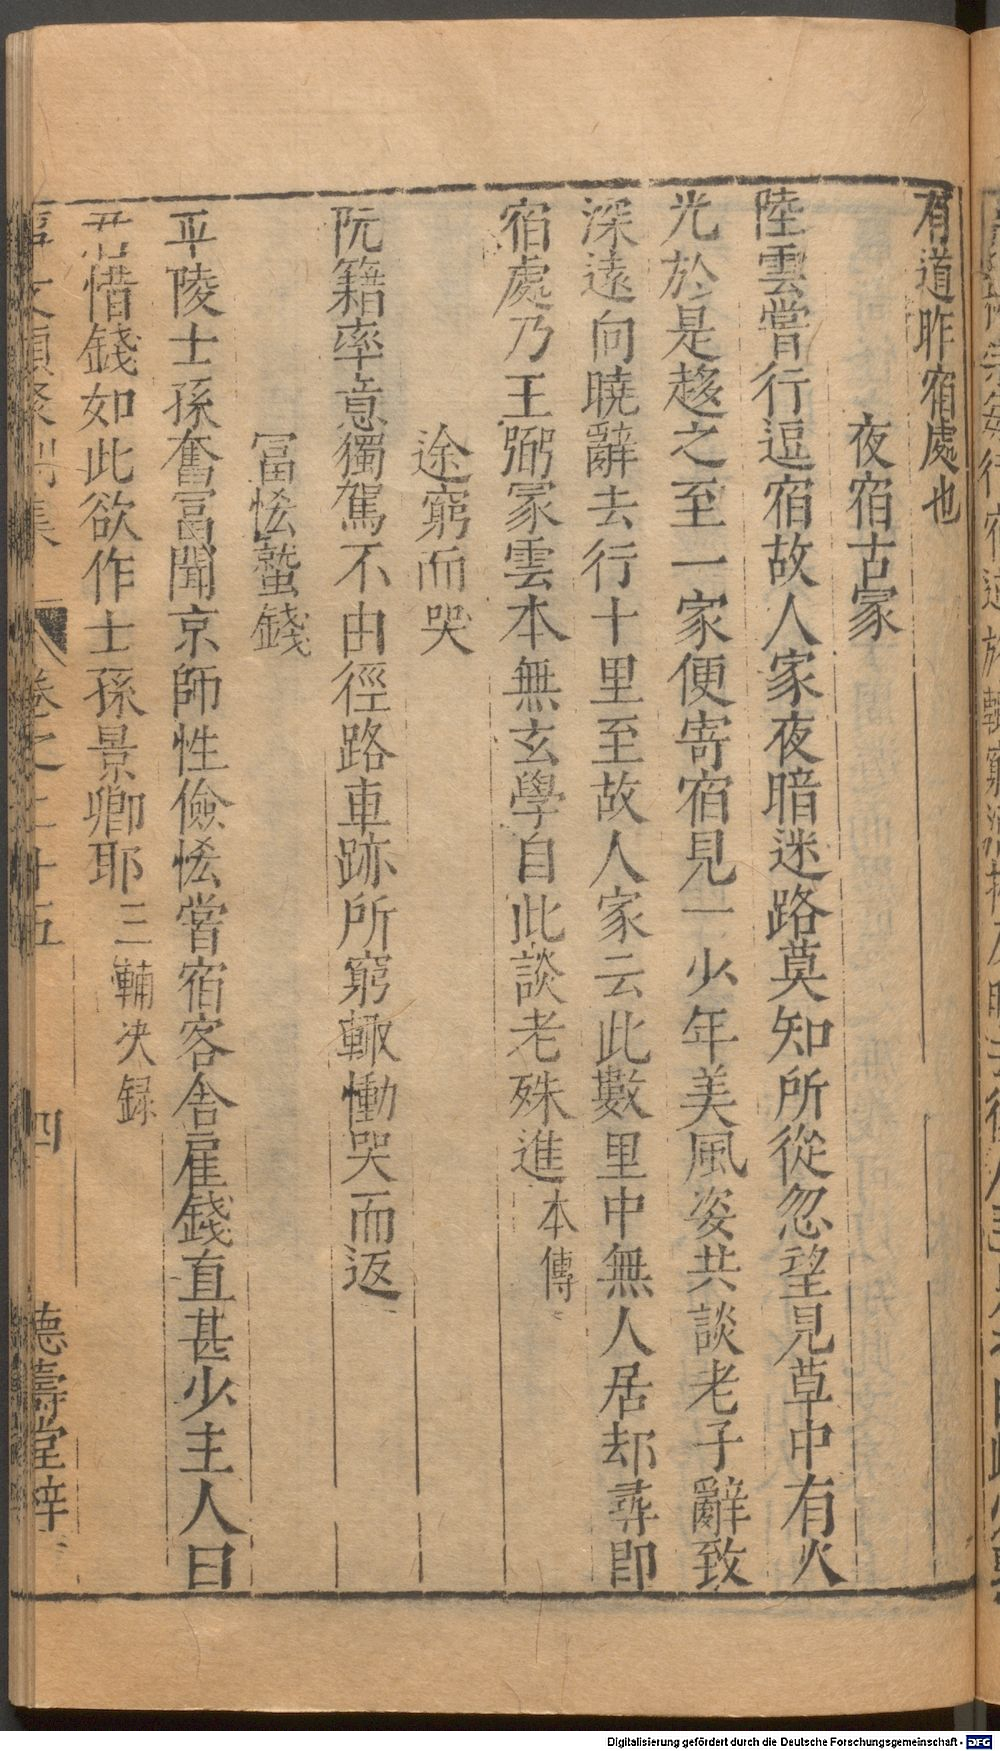 有道昨宿處也
夜宿古冡
陸雲嘗行逗宿故人家夜暗迷路莫知所從忽望見草中有火
光於是趍之至一家便寄宿見一少年美風姿共談老子辭致
深遠向曉辭去行十里至故人家云此數里中無人居却尋即
宿處乃王弼冡雲本無玄學自此談老殊進 本傳
途窮而哭
阮籍率意獨駕不由徑路車跡所窮輙慟哭而返
冨恡蟄錢
平陵士孫奮冨聞京師性儉恡嘗宿客舍雇錢直甚少主人曰
君惜錢如此欲作士孫景卿耶 三輔决録
事文類聚別集 卷之二十五 四 德壽堂梓
Digitalisierung gefördert durch die Deutsche Forschungsgemeinschaft - DFG